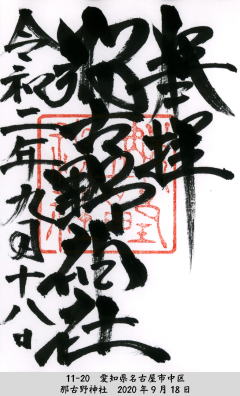 奉拝
那古野神社
令和二年九月十八日
11-20　愛知県名古屋市中区
那古野神社　2020年9月18日